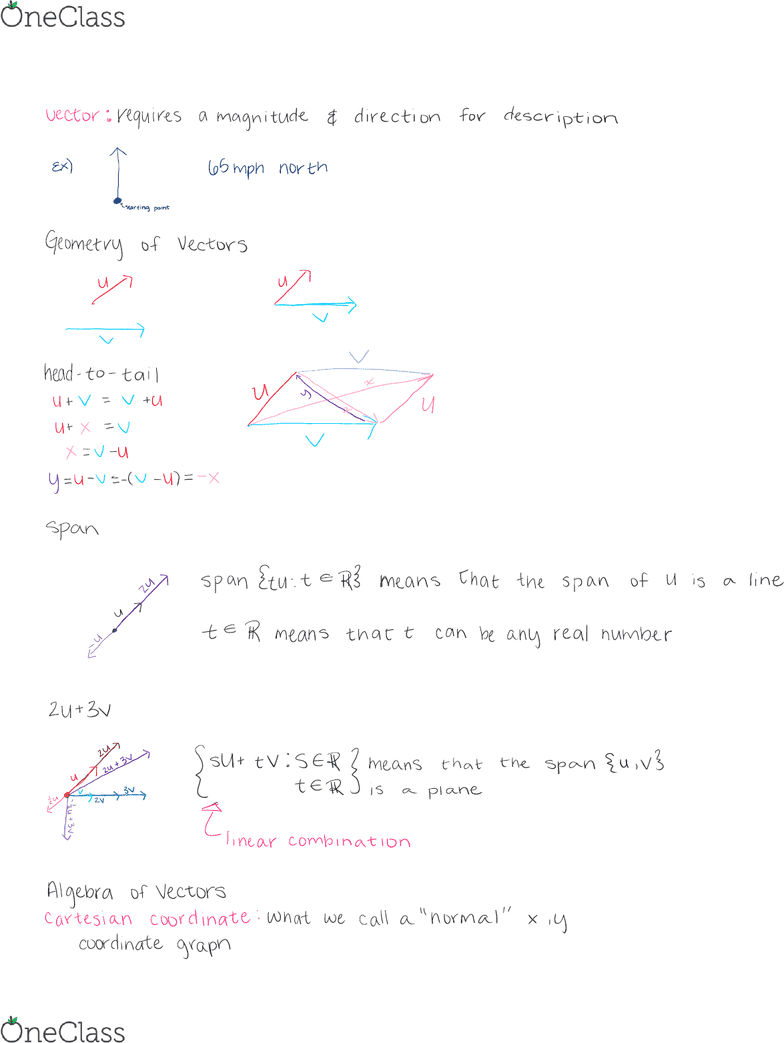 OneClass
vector: requires a magnitude & direction for description
Ex)
65mph north
starting point
Geometry of Vectors
u
v
u
v
head-to-tail
u+v = v+u
u+x = v
x=v-u
y=u-v=-(v-u)=-x
v
u
y
x
u
v
span
2u
u
-u
span {tu: t ∈ ℝ} means that the span of u is a line
t ∈ ℝ means that t can be any real number
2u+3v
2u
u
2u+3v
v
2v
3v
{su+ tv: s∈ℝ} means that the span {u,v}
t∈ℝ is a plane
linear combination
Algebra of Vectors
Cartesian coordinate: what we call a "normal" x,y
coordinate graph
OneClass